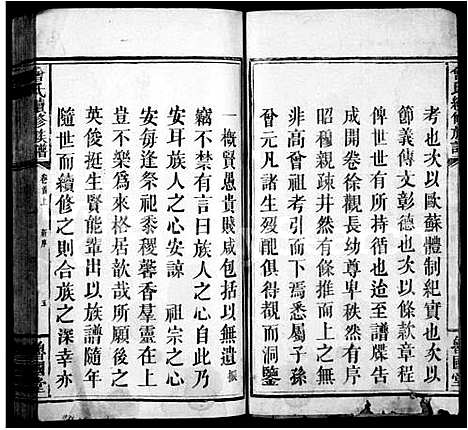 曾氏續修族譜
魯國堂
考也次以歐蘇體制紀實也次以
節義傳文彰德也次以條款章程
世有所持循也迨至譜牒告
成開卷長幼尊卑秩然有條
昭穆親疎井然有條推而上
非高曾祖考而下焉悉屬子孫
曾元凡諸生後觀而洞鑒
一概賢愚貴賤咸包括以無遺振
竊不禁有言曰族人之心自此乃
安耳族人之心安諒 祖宗之心
安每逢祭祀黍稷馨香羣靈在
豈不樂為來格居歆哉所願後之
英俊挺生輩出以族譜隨年
隨世而續修之則合族之深幸亦
曾氏續修族譜
卷首上 新序 五
魯國堂